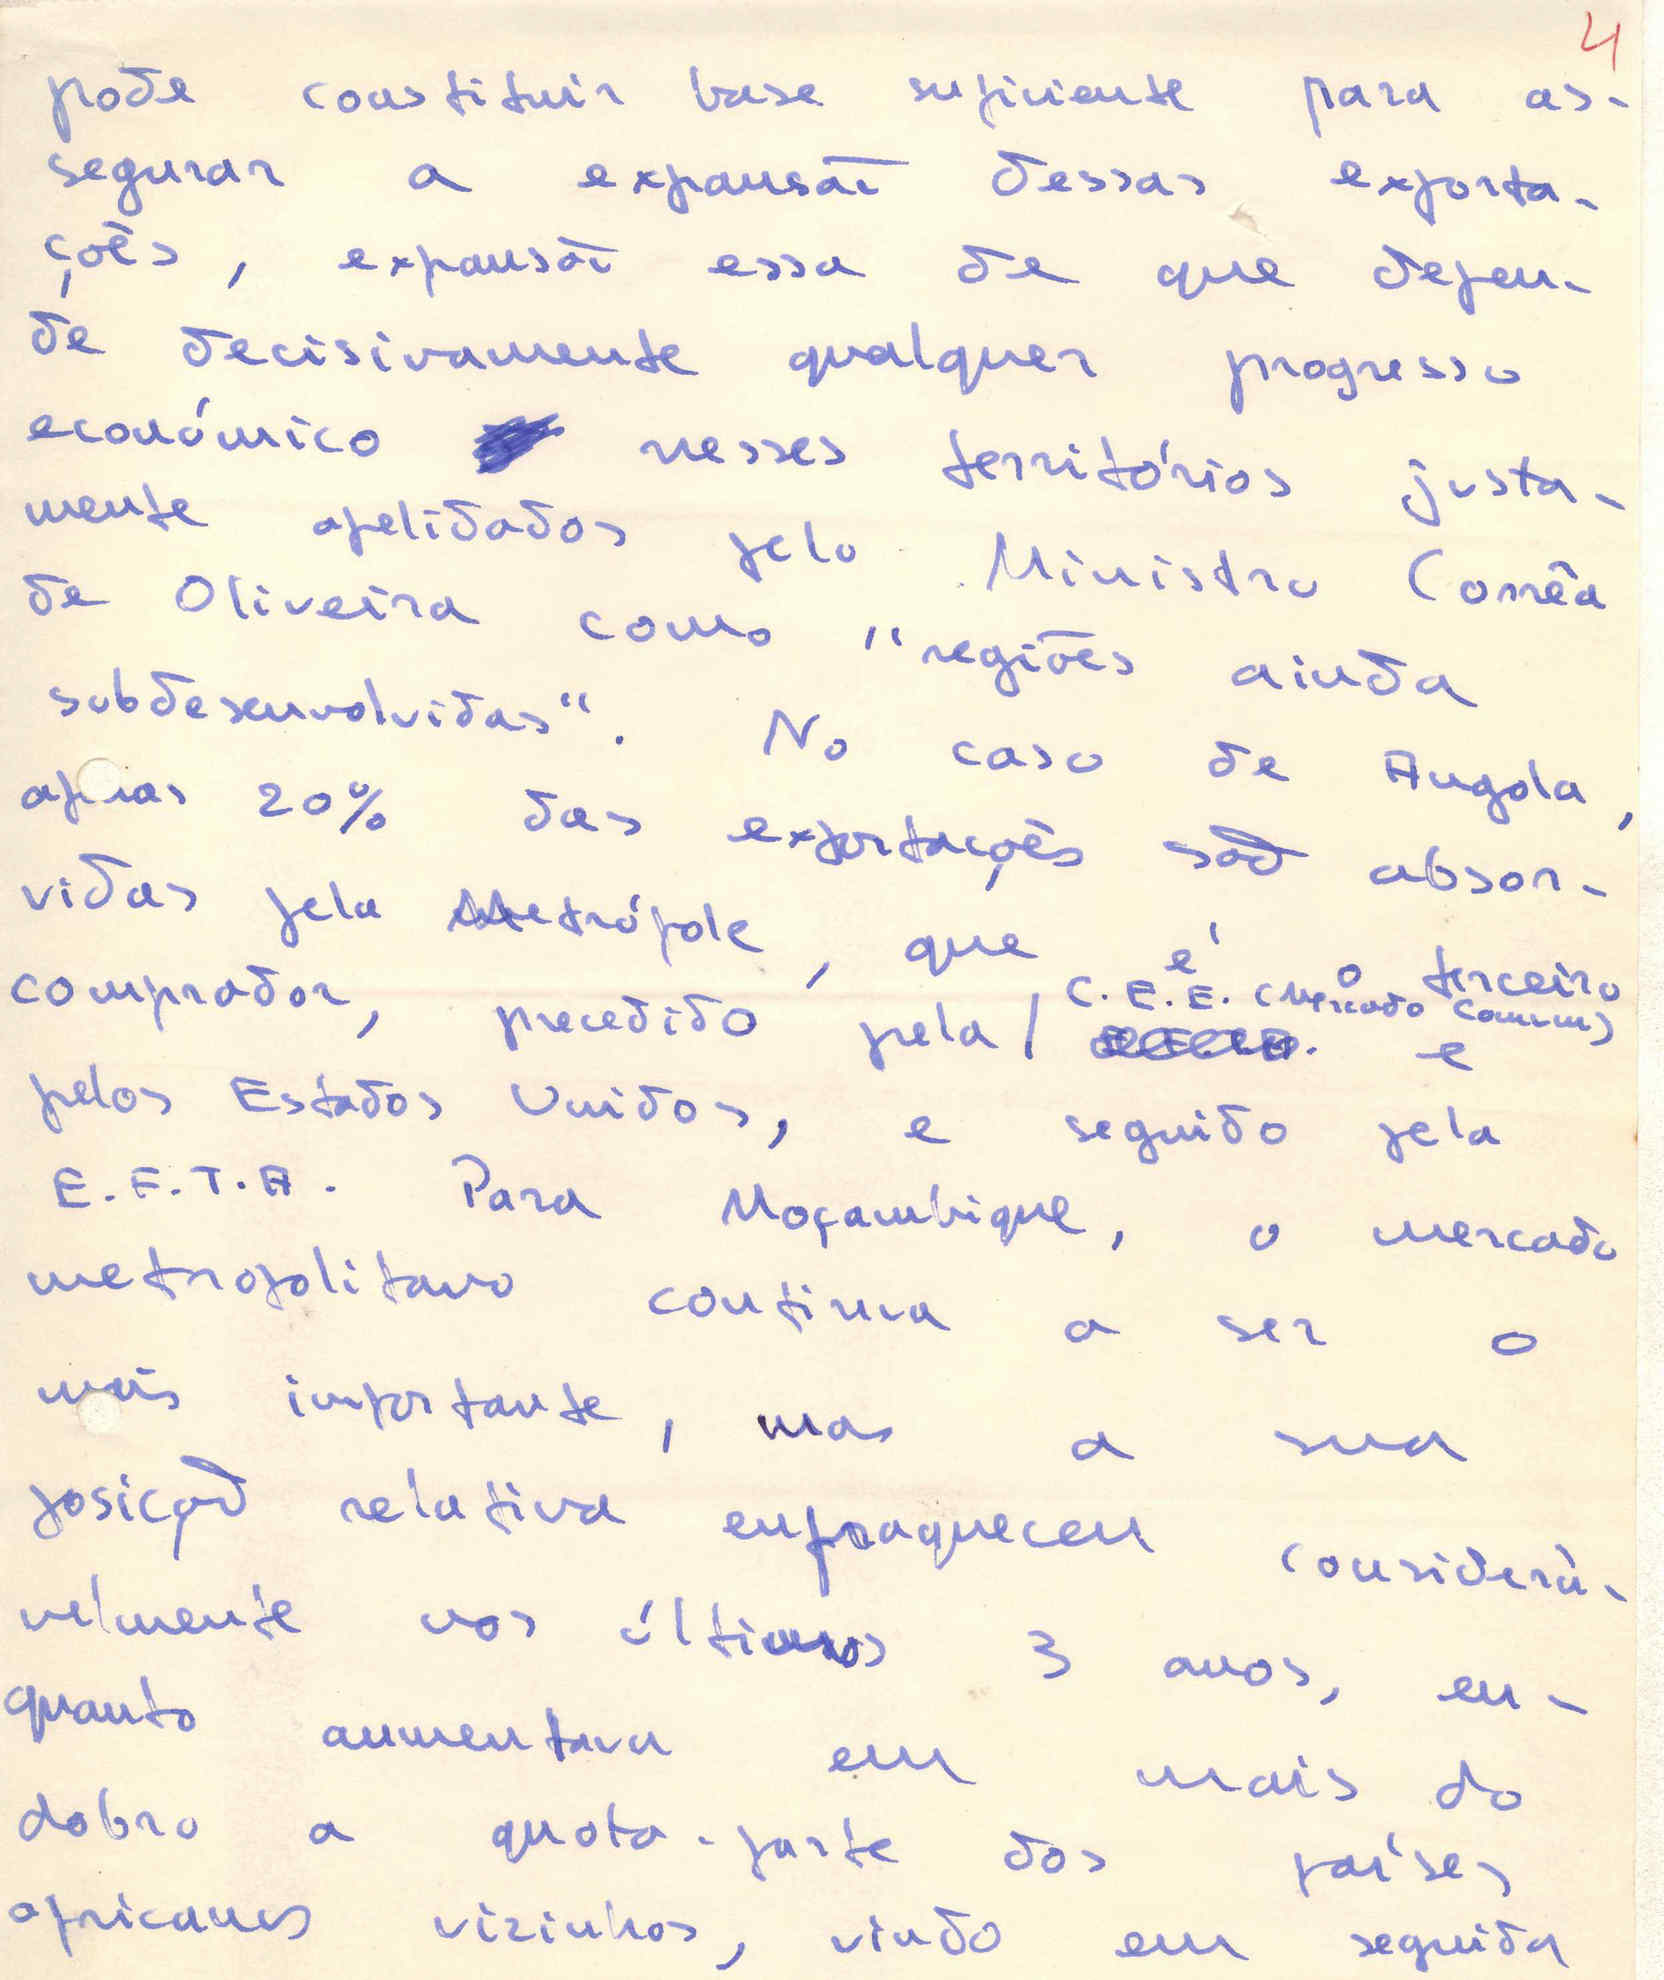 4
pode constituir base suficiente para as-
segurar a expansão dessas exporta-
ções, expansão essa de que depen-
de decisivamente qualquer progresso
económico nesses territórios justa-
mente apelidados pelo Ministro Corrêa
de Oliveira como "regiões ainda
subdesenvolvidas". No caso de Angola,
apenas 20% das exportações são absor-
vidas pela Metrópole, que é o terceiro
comprador, precedido pela C.E.E. (Mercado Comum) e
pelos Estados Unidos, e seguido pela
E.F.T.A. Para Moçambique, o mercado
metropolitano continua a ser o
mais importante, mas a sua
posição relativa enfraqueceu considerà-
velmente nos últimos 3 anos, en-
quanto aumentava em mais do
dobro a quota-parte dos países
africanos vizinhos, vindo em seguida